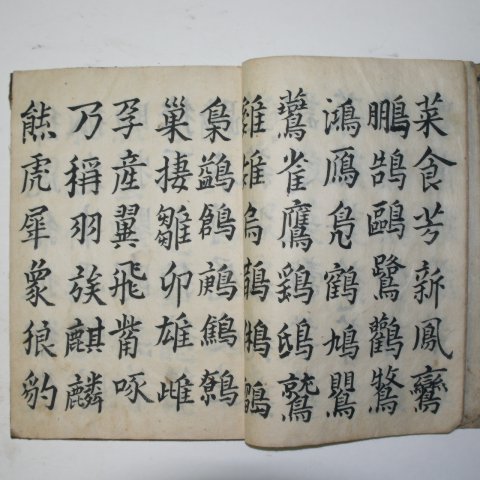 菜食芳新鳳鸞
鵬鵠鷗鷺鸛
鴻鴈鳧鶴鳩鸎
鷰雀鷹鴟鷲
雞雉烏鵲鵂鶹
梟鴿鷦鷯
巢捿雛卵雄雌
孕産翼飛觜啄
乃稱羽族麒麟
熊虎犀象狼豹